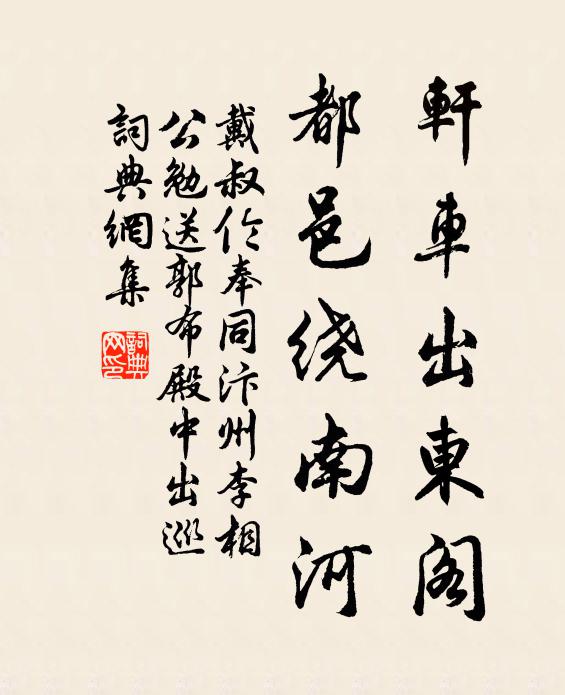 軒車出東閣
都邑绕南河
戴叔伦奉同汴州李相
公勉送郭布殿中出巡
詞典網集
詞典網印